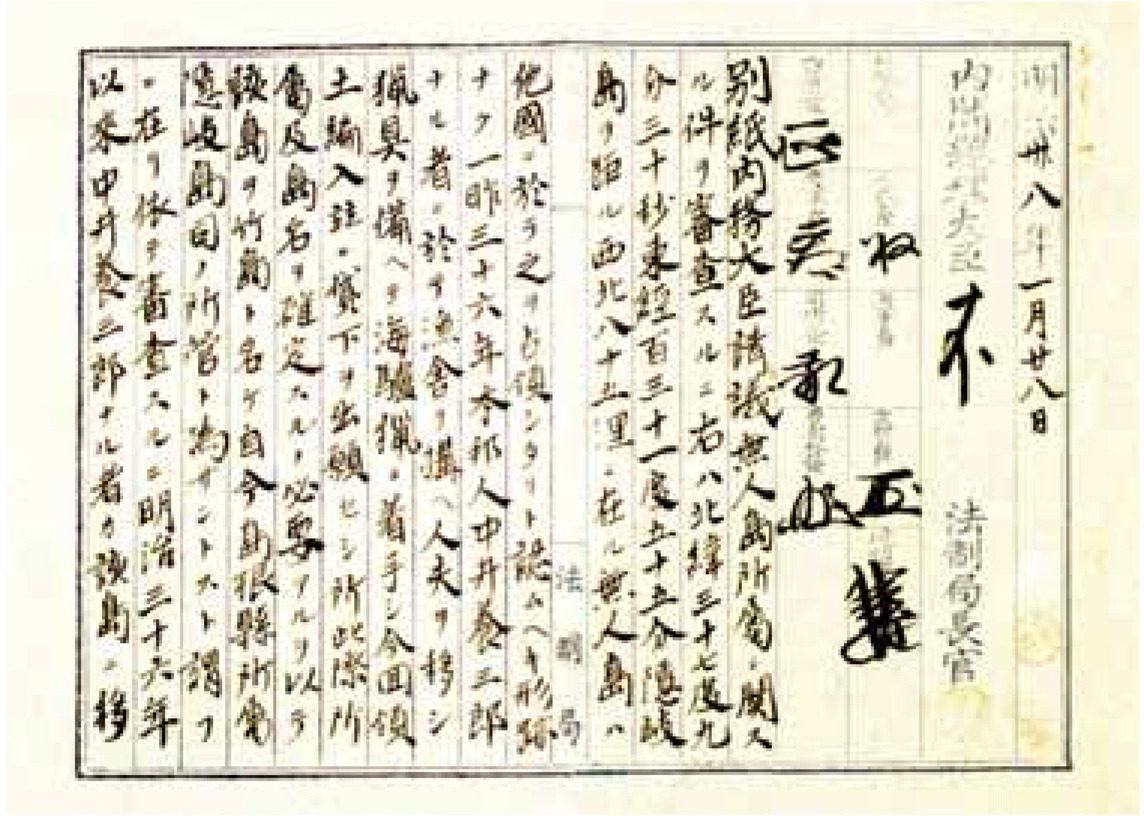 明治卅八年一月廿八日
内閣總理大臣 法制局長官
別紙内務大臣請議無人島所属ニ関ス
ル件ヲ審査スルニ右ハ北緯三十七度九
分三十秒東経百三十一度五十五分隠岐
島ヲ距ル西北八十五浬ニ在ル無人島ハ
他國ニ於テ之ヲ占領シタリト認ムヘキ形跡
ナク一昨三十六年本邦人中井養三郎
ナル者ニ於テ漁舎ヲ構ヘ人夫ヲ移シ
猟具ヲ備ヘテ海驢猟ニ着手シ今回領
土編入並ニ貸下ヲ出願セシ所此際所
属及島名ヲ確定スルノ必要アルヲ以テ
該島ヲ竹島ト名ケ自今島根縣所属
隠岐島司ノ所管ト為サントスト謂フ
ニ在リ依テ審査スルニ明治三十六年
以来中井養三郎ナル者カ該島ニ移
法制局